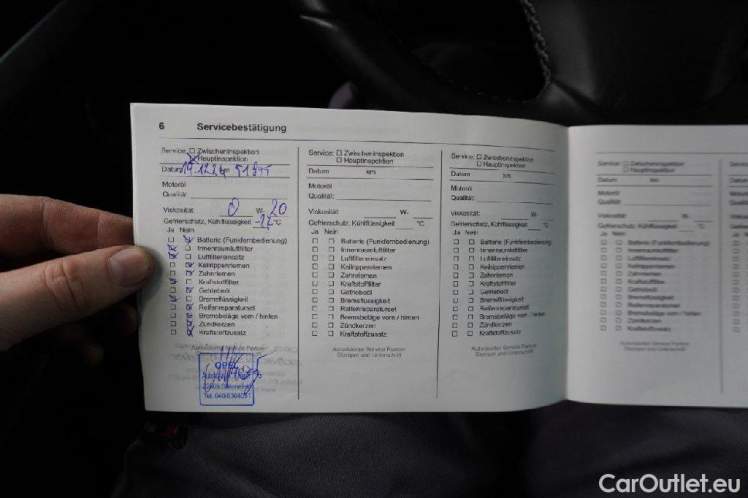 6 Servicebestätigung
Service: Zwischeninspektion
Hauptinspektion
Datum
Motoröl
Qualität:
Viskosität 0 W- 20
Gefrierschutz, Kühlflüssigkeit -22 °C
Ja Nein
Batterie (Funkfernbedienung)
Innenraumluftfilter
Luftfiltereinsatz
Keilrippenriemen
Zahnriemen
Kraftstofffilter
Getriebeöl
Bremsflüssigkeit
Reifenreparaturset
Bremsbeläge vorn / hinten
Zündkerzen
Kraftstoffzusatz
OPEL
Service: Zwischeninspektion
Hauptinspektion
Datum km
Motoröl
Qualität:
Viskosität: W-
Gefrierschutz, Kühlflüssigkeit °C
Ja Nein
Batterie (Funkfernbedienung)
Innenraumluftfilter
Luftfiltereinsatz
Keilrippenriemen
Zahnriemen
Kraftstofffilter
Getriebeöl
Bremsflüssigkeit
Reifenreparaturset
Bremsbeläge vorn / hinten
Zündkerzen
Kraftstoffzusatz
Autorisierter Service Partner
Stempel und Unterschrift
Service: Zwischeninspektion
Hauptinspektion
Datum km
Motoröl
Qualität:
Viskosität: W-
Gefrierschutz, Kühlflüssigkeit °C
Ja Nein
Batterie (Funkfernbedienung)
Innenraumluftfilter
Luftfiltereinsatz
Keilrippenriemen
Zahnriemen
Kraftstofffilter
Getriebeöl
Bremsflüssigkeit
Reifenreparaturset
Bremsbeläge vorn / hinten
Zündkerzen
Kraftstoffzusatz
Autorisierter Service Partner
Stempel und Unterschrift
Service: Zwischeninspektion
Hauptinspektion
Datum km
Motoröl
Qualität:
Viskosität: W-
Gefrierschutz, Kühlflüssigkeit °C
Ja Nein
Batterie (Funkfernbedienung)
Innenraumluftfilter
Luftfiltereinsatz
Keilrippenriemen
Zahnriemen
Kraftstofffilter
Getriebeöl
Bremsflüssigkeit
Reifenreparaturset
Bremsbeläge vorn / hinten
Zündkerzen
Kraftstoffzusatz
Autorisierter Service Partner
Stempel und Unterschrift
CarOutlet.eu